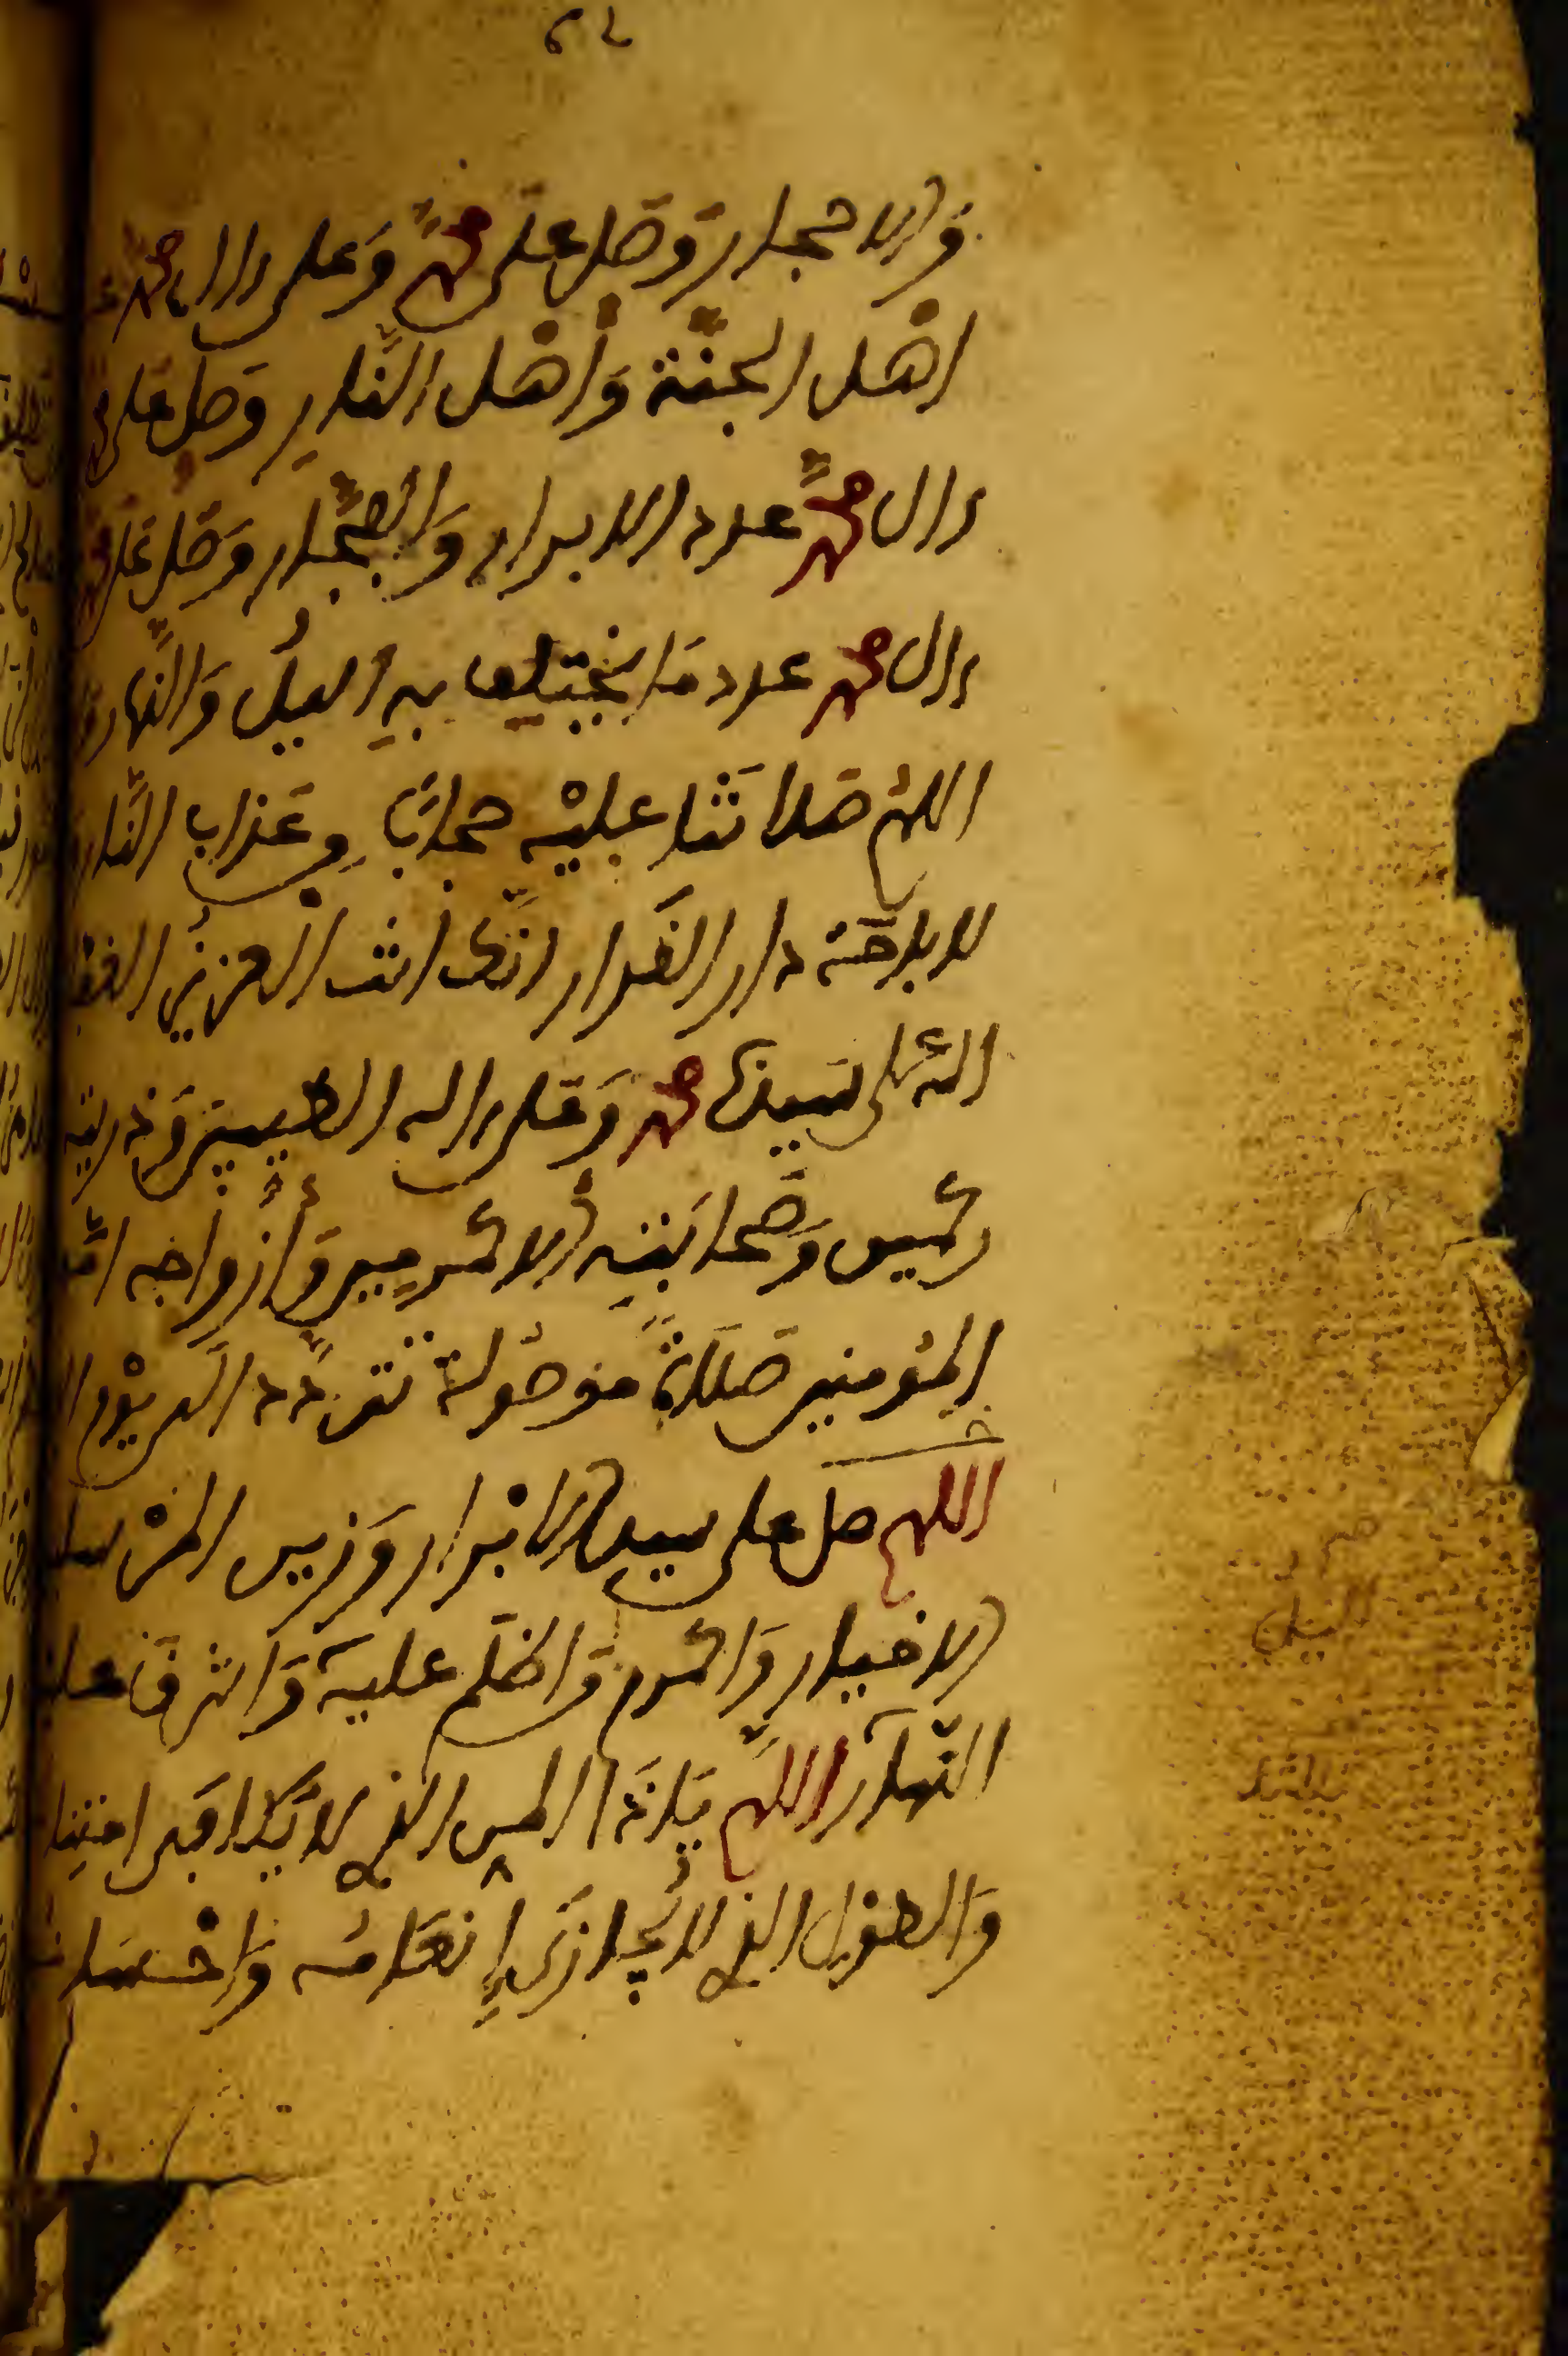 والاحجار وصل على محمد وعلى ءال محمد
اهل الجنة وأهل النار وصل على
ءال محمد عدد الابرار والفجار وصل على
ءال محمد عدد ما يختلف به اليل والنهار
اللهم صلاتنا عليه حجابا من عذاب النار
لاباحة دار القرار انك انت العزيز
الله على سيدنا محمد وعلى ءاله الطيبين وذريته
ركيس وصحابته الاكرمين وأزواجه
المؤمنين صلاة موصولة تتردد الى يوم
اللهم صل على سيد الابرار وزين
الاخيار واكرم من اظلم عليه واشرق
النهار اللهم ياذا المن الذي لا يكافى
والطول الذي لا يجازى إنعامه
النيل